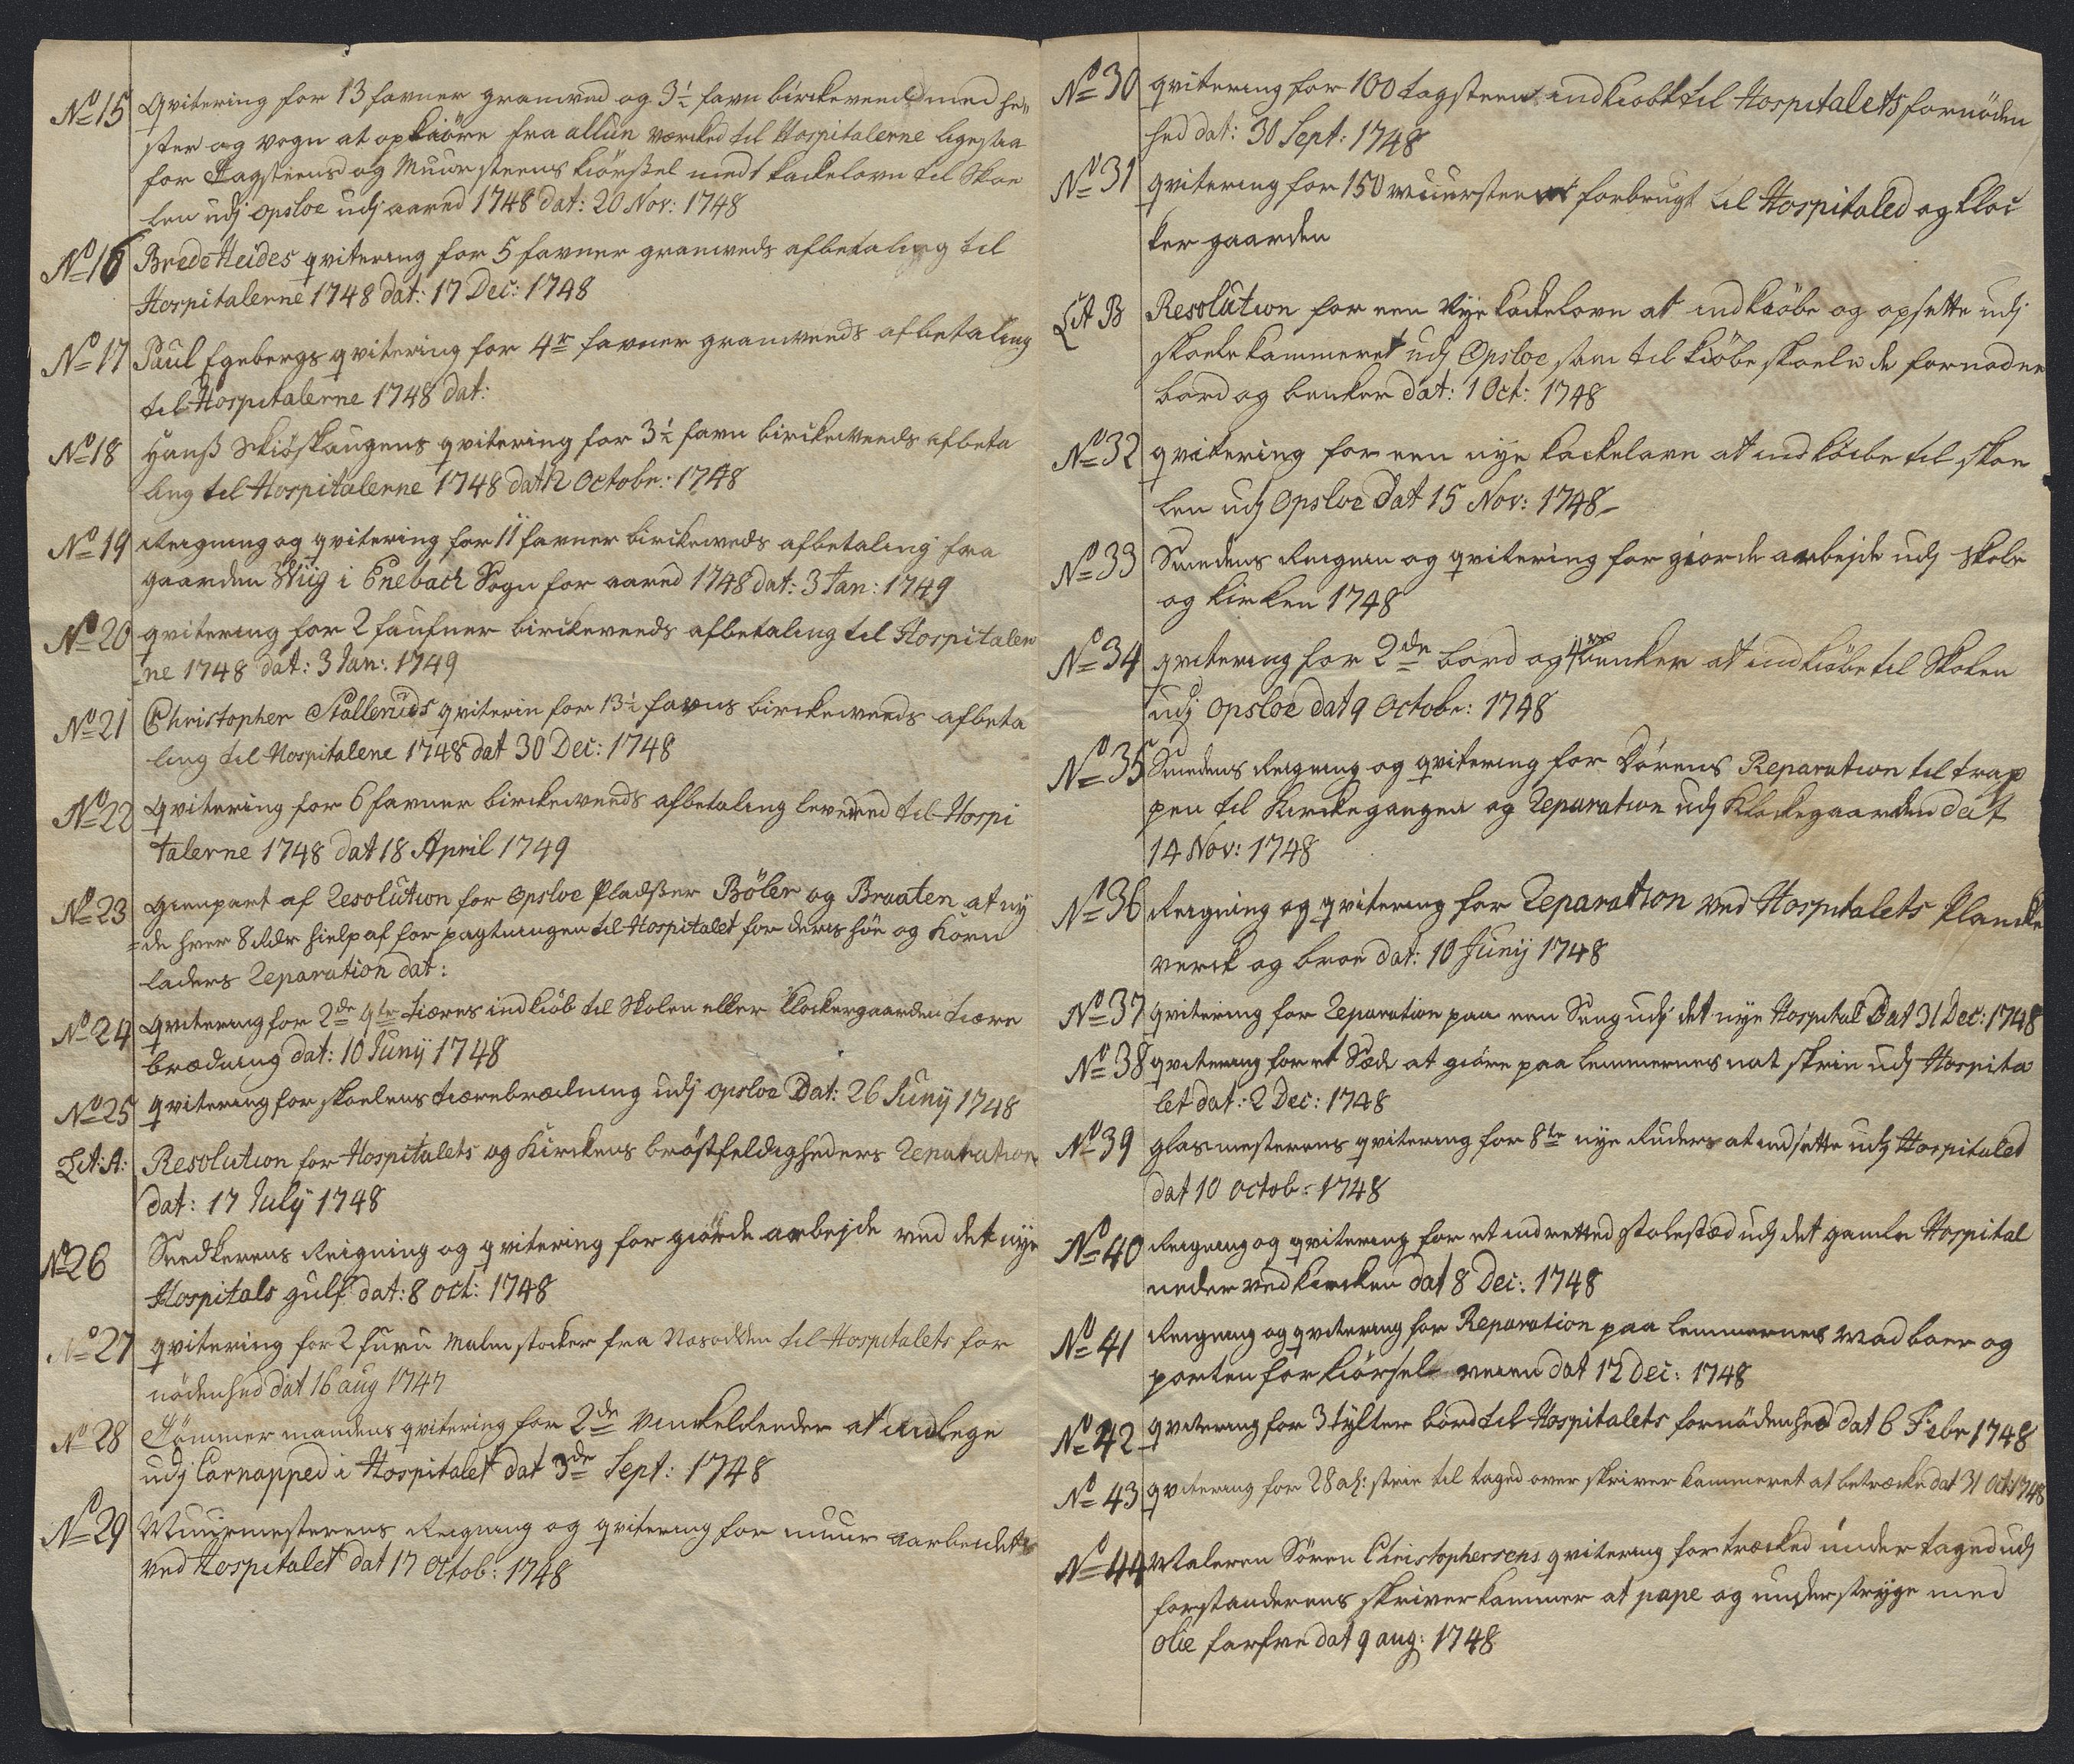 No 15 Qvitering for 13 favner granved og 3½ favn birckeveed med he„
ster og vogn at opkiöre fra allun værcked til Hospitalerne ligesaa
for Tagsteens og Muursteens kiörßel med 1 kackelovn til Skoe
len udj opsloe udj aared 1748 dat: 20 Nov: 1748
No 16 Brede Heides qvitering for 5 favner granveds afbetaling til
Hospitalerne 1748 dat: 17 Dec: 1748
No 17 Paul Egebergs qvitering for 4r favner granveeds afbetaling
til Hospitalerne 1748 dat:
No 18 Hanß Skiöskaugens qvitering for 3½ favn birckeveeds afbeta
ling til Hospitalerne 1748 dat 12 Octobr: 1748
No 19 Reigning og qvitering for 11 favner birckeveds afbetaling fra
gaarden Wiig i Enebach Sogn for aared 1748 dat: 3 Jan: 1749
No 20 qvitering for 2 faufner birckeveeds afbetaling til Hospitaler
ne 1748 dat: 3 Jan: 1749
No 21 Christopher Stalleruds qviterin for 13½ favns birckeveeds afbeta
ling til Hospitalene 1748 dat 30 Dec: 1748
No 22 Qvitering for 6 favner birckeveeds afbetaling levered til Hospi
talerne 1748 dat 18 April 1749
No 23 Gienpart af Resolution for Opsloe Pladßer Böler og Braaten at ny
de hver 8 Rdr hielp af forpagtningen til Hospitalet for deris höe og Korn
laders Reparation dat:
No 24 Qvitering for 2de qtr tiæres indkiöb til Skolen eller Klockergaarden tiære
brædning dat: 10 Junij 1748
No 25 qvitering for skoelens tiærebrædning udj opsloe Dat: 26 Junij 1748
Lit: A: Resolution for Hospitalets og Kirckens bröstfeldigheders Reparation
dat: 17 July 1748
No 26 Snedkerens Reigning og qvitering for giörde arbejde ved det nye
Hospitals gulf dat: 8 oct: 1748
No 27 qvitering for 2 furu malmstocker fra Nasodden til Hospitalets for
nödenhed dat 16 aug 1747
No 28 Tömmermandens qvitering for 2de Vinckelbender at indlege
udj Carnapped i Hospitalet dat 3de Sept: 1748
No 29 Muurmesterens Reigning og qvitering for muur aarbeidets
ved Hospitalet dat 17 Octob: 1748
No 30 qvitering for 100 tagsteen indkiöbt til Hospitalets fornöden
hed dat: 30 Sept: 1748
No 31 qvitering for 150 muursteen forbrugt til Hospitaled og kloc
ker gaarden
Lit B Resolution for een Nye kackelovn at indkiöbe og opsette udj
skoelekammeret udj Opsloe sam til kiöbe skoele de fornødne
bord og bencker dat: 1 Oct: 1748
No 32 qvitering for een nye kackelovn at indkiöbe til skoe
len udj Opsloe Dat 15 Nov: 1748
No 33 Smedens Reignin og qvitering for giorde arbejde udj skole
og kircken 1748
No 34 qvitering for 2de bord og 4re bencker at indkiöbe til Skolen
udj opsloe dat 9 Octobr: 1748
No 35 Smedens Reigning og qvitering for Dörens Reparation til trap
pen til Kirckegangen og Reparation udj Klockegaarden dat
14 Nov: 1748
No 36 Reigning og qvitering for Reparation ved Hospitalets Plancke
verck og broe dat: 10 Junij 1748
No 37 qvitering for Reparation paa een Seng udj det nye Hospital Dat 31 Dec: 1748
No 38 qvitering for et Sæde at giöre paa lemmernes nat skrin udj Hospita
let dat: 2 Dec: 1748
No 39 glasmesterens qvitering for 8te nye Ruders at indsette udj Hospitaled
dat 10 octob: 1748
No 40 Reigning og qvitering for et indretted stolestæd udj det gamle Hospital
neder ved kircken dat 8 Dec: 1748
No 41 Reigning og qvitering for Reparation paa lemmernes mad boer og
porten for kiörsel veien dat 12 Dec: 1748
No 42 qvitering for 3 tylter bord til Hospitalets fornödenhed dat 6 Febr 1748
No 43 qvitering for 28 al: strie til taged over skriver kammeret at betrecke dat 31 Oct: 1748
No 44 Maleren Sören Christophersens qvitering for træcked under taged udj
forstanderens skriverkammer at pape og understryge med
olie farfve dat 9 aug: 1748